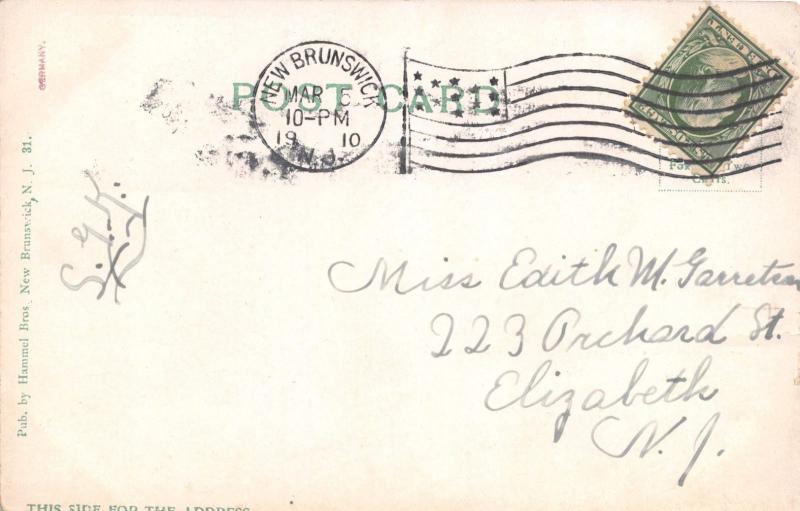 GERMANY.
POST CARD
NEW BRUNSWICK
MAR 5
10-PM
19 10
N.J.
Two
Miss Edith M. Garretson
223 Orchard St.
Elizabeth
N. J.
Pub. by Hammel Bros. New Brunswick, N. J. 31.
THIS SIDE FOR THE ADDRESS